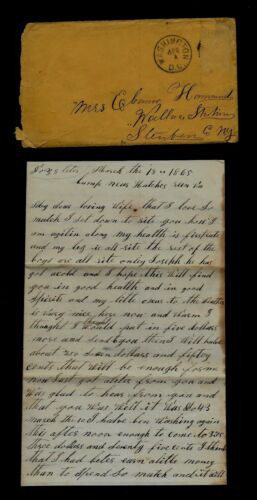 WASHINGTON
APR
D.C.
Mrs Eboney Howard
Wallace Station
Steuben Co NY
March the 18 1865
Camp near Hatches run Va
My dear loving Wife that I love so
match I set down to rite you how I
am agiten along my health is firstrate
and my leg is all rite the rest of the
boys are all rite ontey Joseph he has
got acold and I hope this will find
you in good health and in good
Spirits and my little ones to the wether
is vary nice here now and warm I
thought I would put in five dollars
more and send you then I will have
about two dowen dollars and fiftey
cents that will be enough for me
now I just got aleter from you and
was glad to hear from you and
that you was well it was dated
march the I have ben washing again
this after noon enough to come to
three dollars and seventy five cents I think
that I had beter earn alitle money
than to spend so match and it will